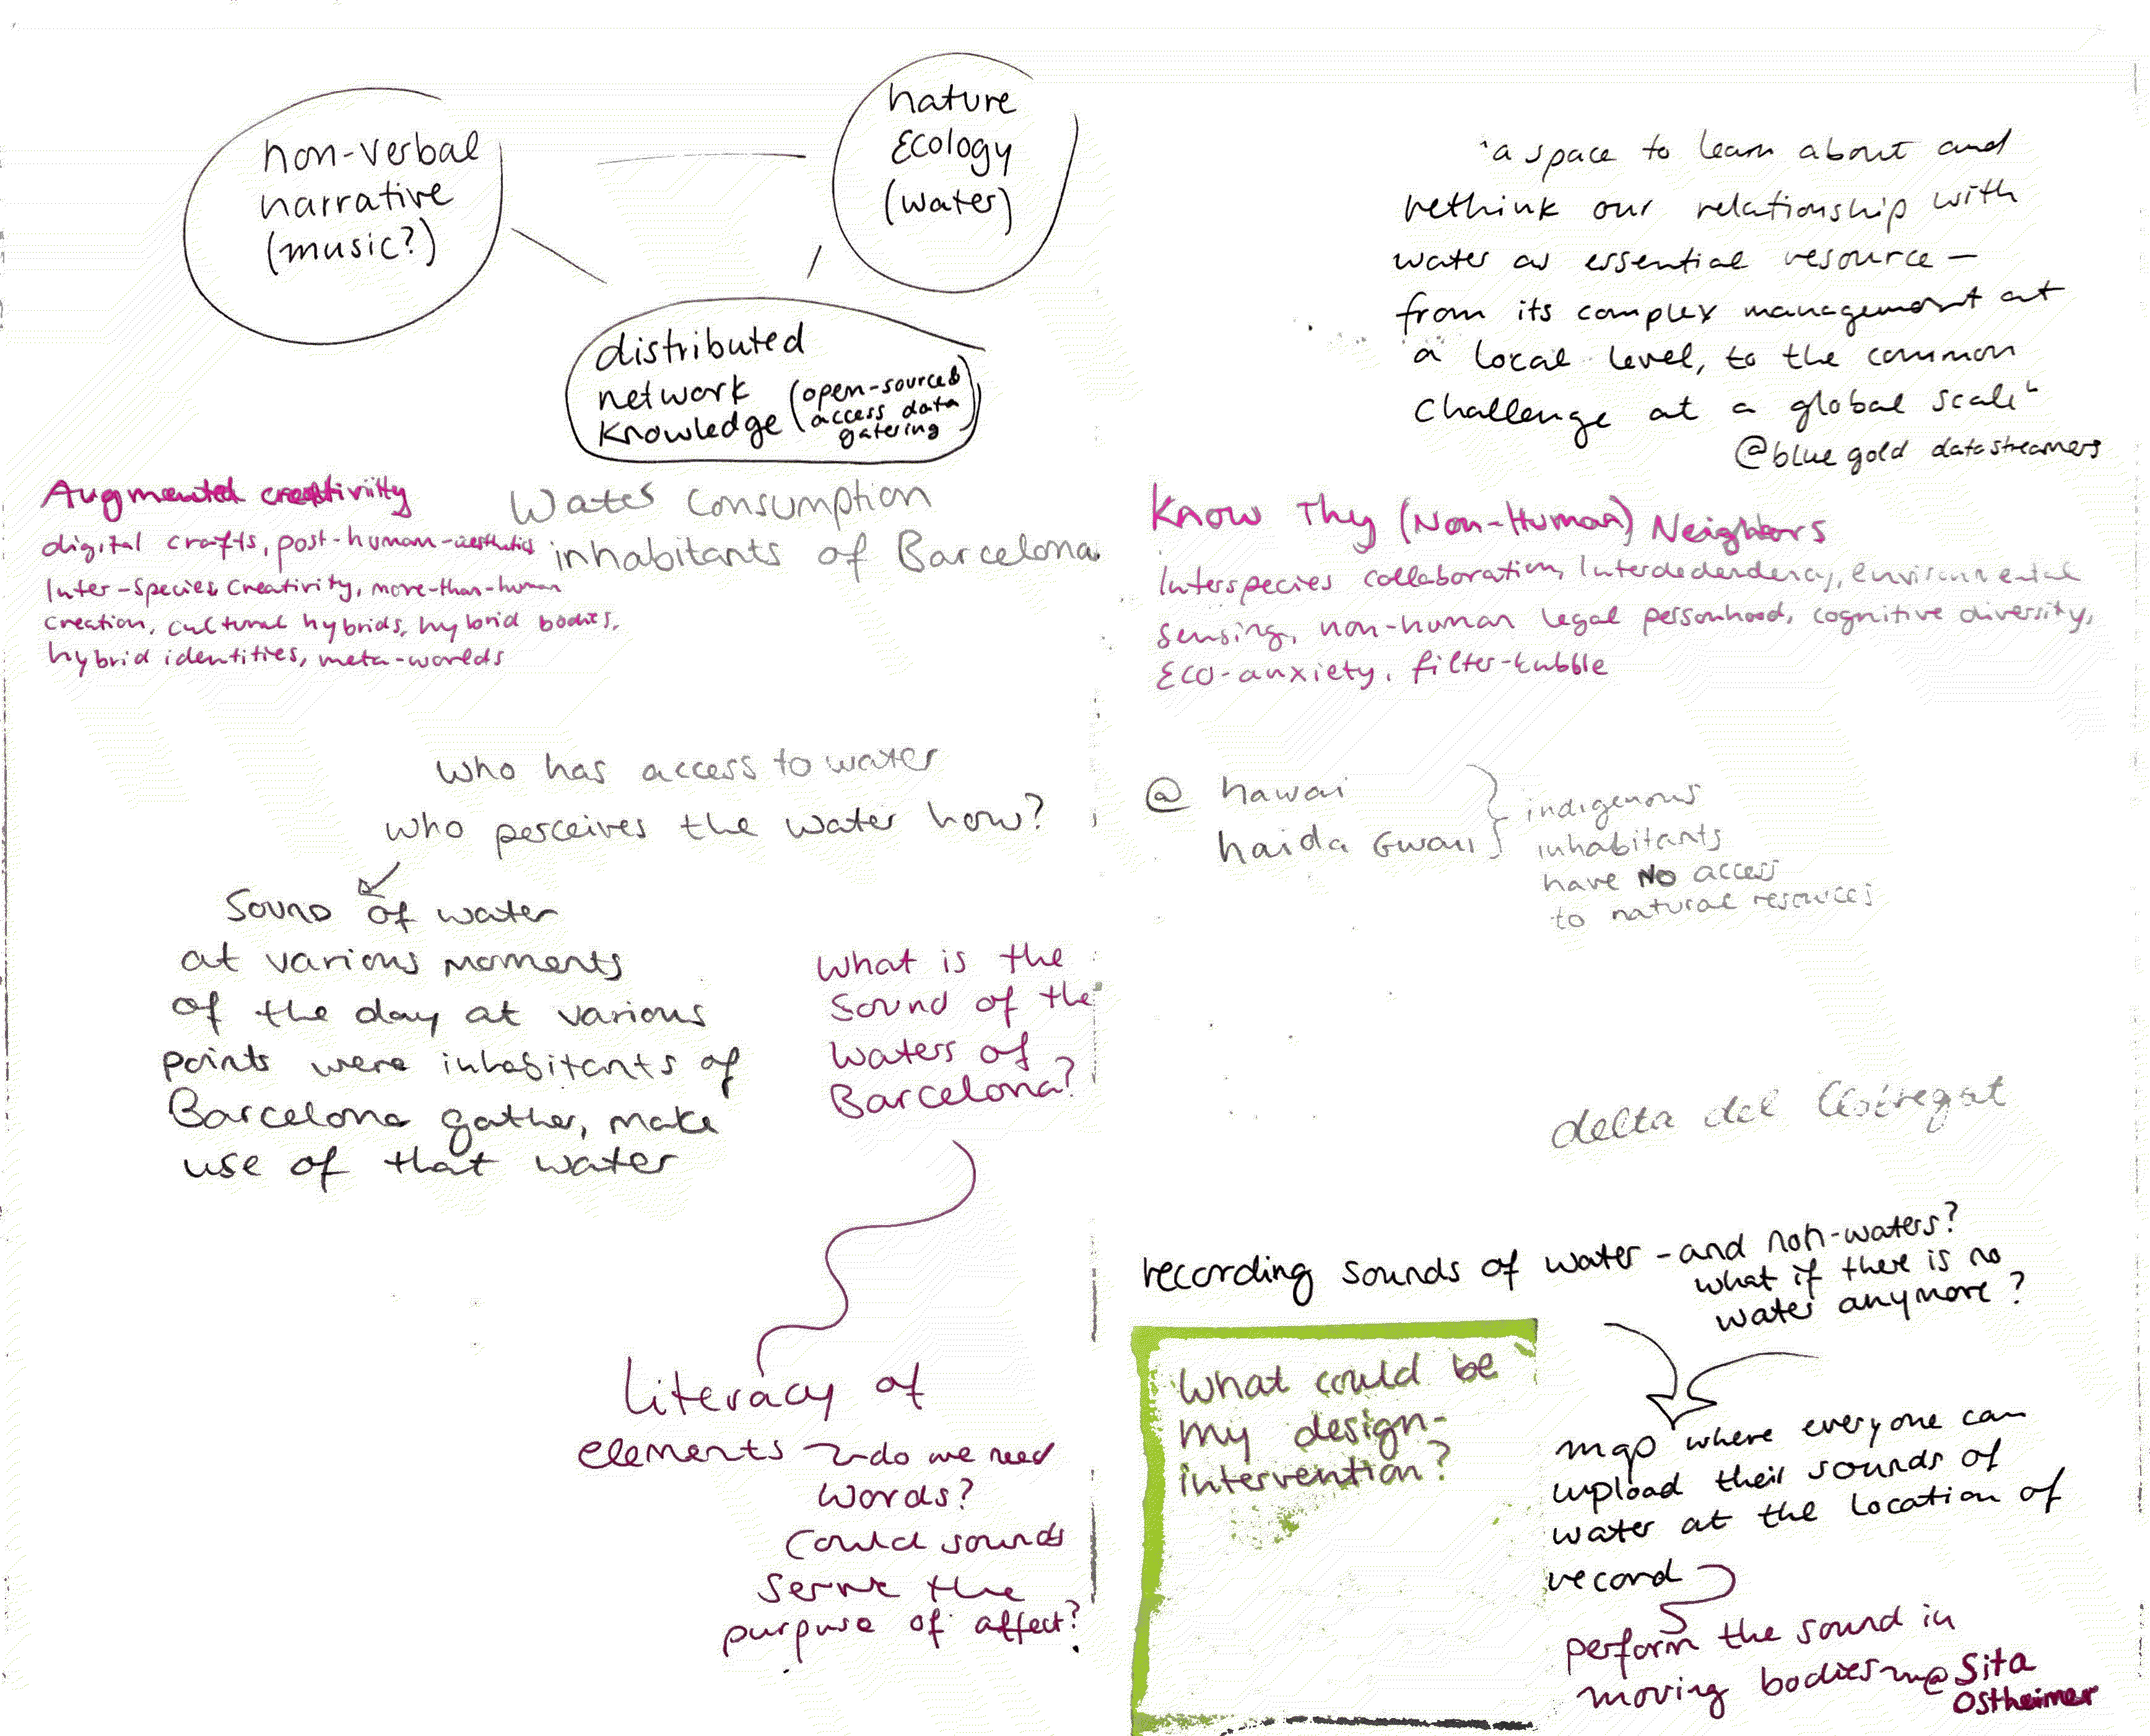 non-verbal
narrative
(music?)
nature
Ecology
(water)
distributed
network
knowledge
(open-source &
access data
gatering)
Augmented creativity
digital crafts, post-human-aesthetics
Inter-species creativity, more-than-human
creation, cultural hybrids, hybrid bodies,
hybrid identities, meta-worlds
Water consumption
inhabitants of Barcelona
who has access to water
who perceives the water how?
Sound of water
at various moments
of the day at various
points were inhabitants of
Barcelona gather, make
use of that water
What is the
sound of the
waters of
Barcelona?
literacy of
elements
do we need
words?
Could sounds
serve the
purpose of affect?
"a space to learn about and
rethink our relationship with
water as essential resource –
from its complex management at
a local level, to the common
challenge at a global scale"
@blue gold datastreamers
Know Thy (Non-Human) Neighbors
Interspecies collaboration, Interdedendency, environmental
sensing, non-human legal personhood, cognitive diversity,
Eco-anxiety, filter-bubble
@ hawai
haida Gwaii
indigenous
inhabitants
have NO access
to natural resources
delta del llobregat
recording sounds of water - and non-waters?
what if there is no
water anymore?
What could be
my design-
intervention?
map where everyone can
upload their sounds of
water at the location of
record
perform the sound in
moving bodies @ Sita
Ostheimer